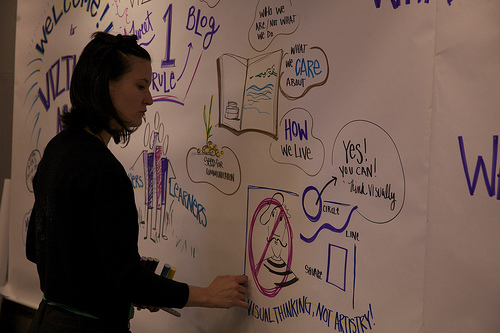 WELCOME!
to
VIZTH
Tweet
1
RULE
BLOG
WHO WE
ARE / NOT WHAT
WE DO
WHAT
WE CARE
ABOUT
HOW
WE LIVE
YES!
YOU CAN!
think visually
LEARNERS
CIRCLE
LINE
SQUARE
VISUAL THINKING, NOT ARTISTRY!